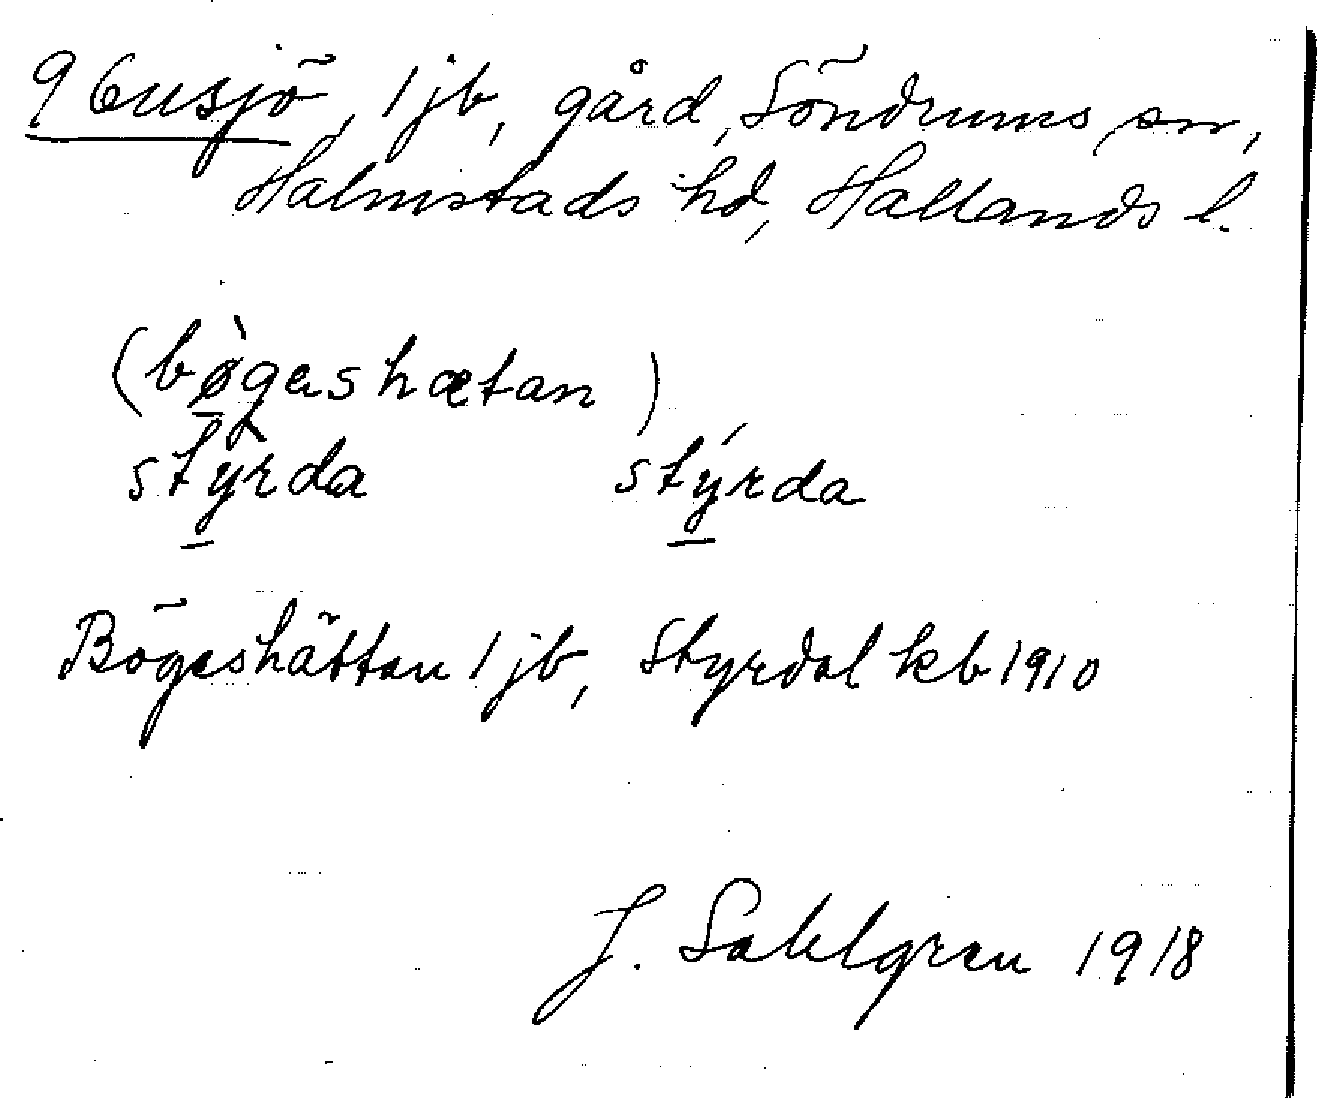 9 Gusjö, 1 jb, gård, Söndrums sn,
Halmstads hd, Hallands l.
(bø̀gashætan)
stỳrda stýrda
Bögeshättan 1 jb, Styrdal kb 1910
J. Sahlgren 1918